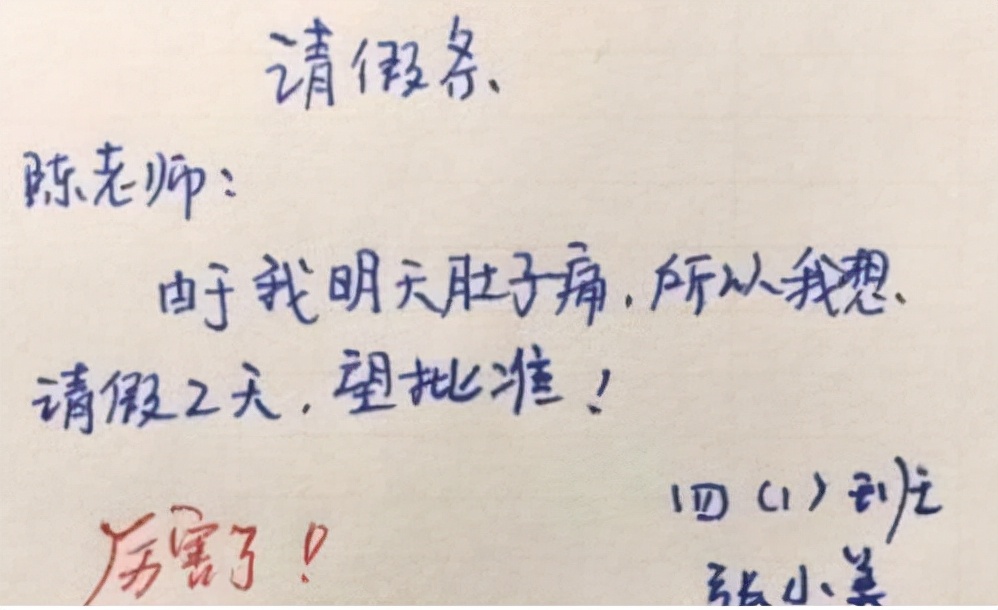 请假条
陈老师：
由于我明天肚子痛，所以我想
请假2天，望批准！
四（1）班
张小美
厉害了！